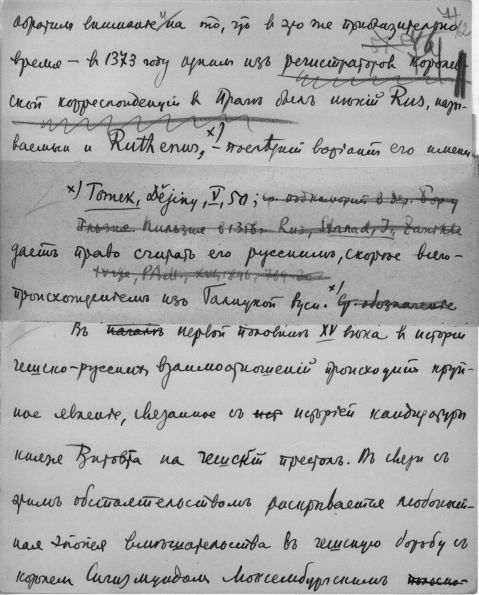 обратимъ вниманіе на то, что въ это же приблизительно
время – въ 1373 году однимъ изъ регистраторовъ королев-
ской корреспонденціи въ Прагѣ былъ некій Rus, назы-
ваемый и Ruthenus, x) – послѣдній варіантъ его имени
x) Tomek, Dějiny, V, 50;
даетъ право считать его русскимъ, скорѣе всего –
происхожденіемъ изъ Галицкой Руси. x)
Въ первой половинѣ XV вѣка въ исторіи
чешско-русскихъ взаимоотношеній происходитъ круп-
ное явленіе, связанное съ исторіей кандидатуры
князя Витовта на чешскій престолъ. Въ связи съ
этимъ обстоятельствомъ раскрывается любопыт-
ная эпопея вмѣшательства въ чешскую борьбу съ
королемъ Сигизмундомъ Люксембургскимъ